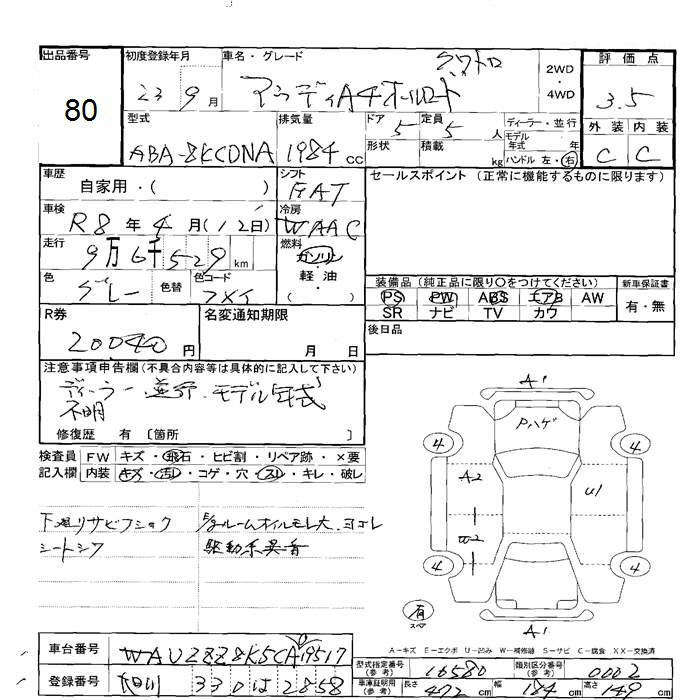 出品番号
80
初度登録年月
23 9月
車名・グレード
クワトロ
アウディA4オールロード
2WD
・
4WD
評価点
3.5
型式
ABA-8KCDNA
排気量
1984 cc
ドア 5
定員 5 人
形状
積載 kg
ディーラー・並行
モデル年式 年
ハンドル 左・右
外装 内装
C C
車歴
自家用・( )
シフト
FAT
車検
R8年4月(12日)
冷房
WAAC
走行
9万6千529km
燃料
ガソリン
・
軽油
( )
色
グレー
色替
色コード
セールスポイント (正常に機能するものに限ります)
装備品 (純正品に限り〇をつけてください)
PS PW ABS エアB AW
SR ナビ TV カワ
新車保証書
有・無
後日品
R券
20040円
名変通知期限
月 日
注意事項申告欄(不具合内容等は具体的に記入して下さい)
ディーラー 並行、モデル年式
不明
修復歴 有 〔箇所 〕
検査員記入欄
FW キズ・飛石・ヒビ割・リペア跡・×要
内装 キズ・汚れ・コゲ・穴・スレ・キレ・破レ
下廻リサビフショク
シートシワ
ルームオイルモレ大、ヨゴレ
駆動系異音
A1
Pハゲ
4 4
A2
U1
W2
4 4
有
スペア
A1
A-キズ E-エクボ U-凹み W-補修跡 S-サビ C-腐食 XX-交換済
車台番号
WAUZZZ8K5CA119517
登録番号
330は2858
型式指定番号
(参考)
16580
類別区分番号
(参考)
0002
車庫証明用
(参考)
長さ 472cm
幅 184cm
高さ 149cm